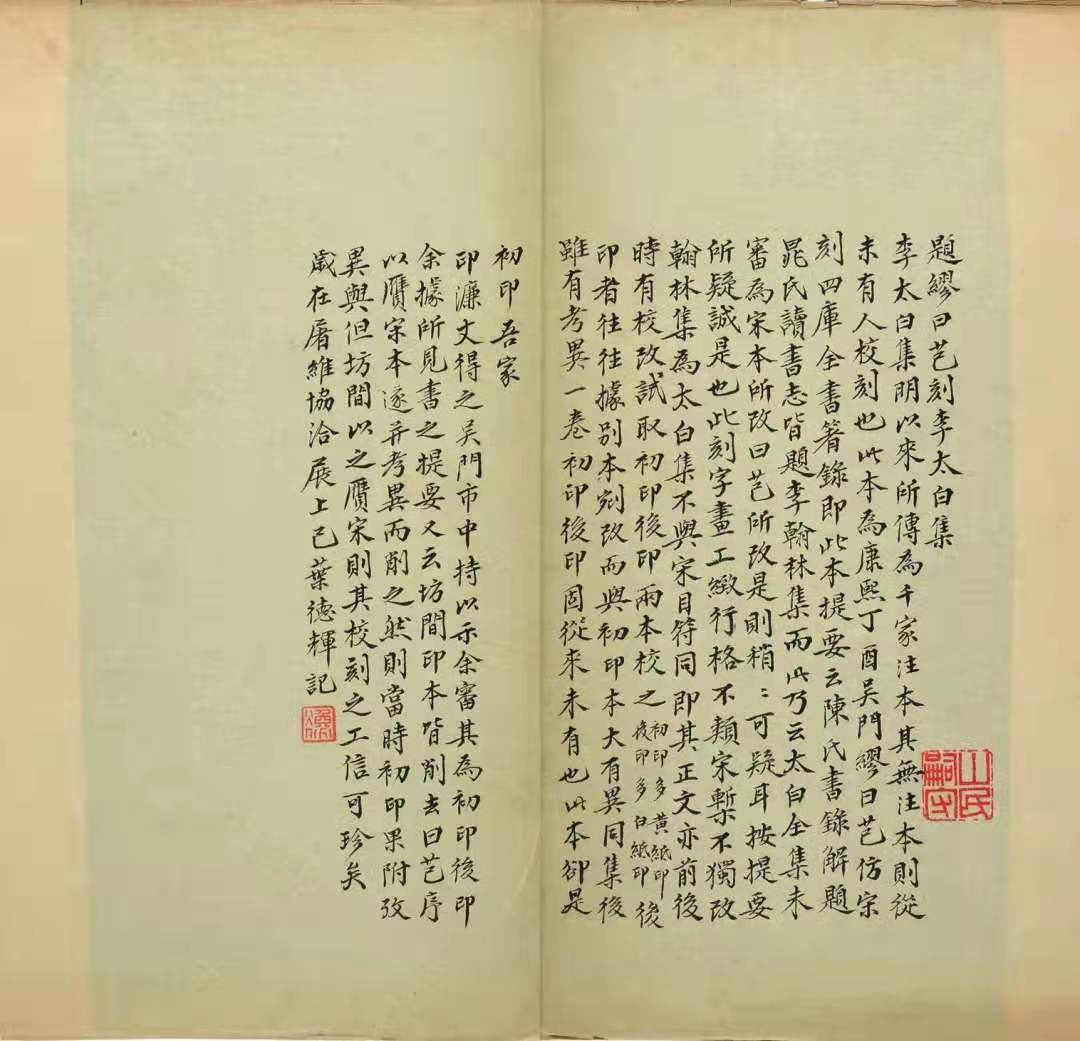 題繆曰芑刻李太白集
李太白集明以來所傳為千家注本其無注本則從
未有人校刻也此本為康熙丁酉吳門繆曰芑仿宋
刻四庫全書箸錄即此本提要云陳氏書錄解題
晁氏讀書志皆題李翰林集而此乃云太白全集未
審為宋本所改曰芑所改是則稍〻可疑耳按提要
所疑誠是也此刻字畫工緻行格不類宋槧不獨改
翰林集為太白集不與宋目符同即其正文亦前後
時有校改試取初印後印兩本校之初印多黃紙印後印多白紙印後
印者往往據別本剜改而與初印本大有異同集後
雖有考異一卷初印後印固從來未有也此本卻是
初印吾家
印濂文得之吳門市中持以示余審其為初印後印
余據所見書之提要又云坊間印本皆削去曰芑序
以贗宋本遂并考異而削之然則當時初印果附攷
異與但坊間以之贗宋則其校刻之工信可珍矣
歲在屠維協洽展上巳葉德輝記